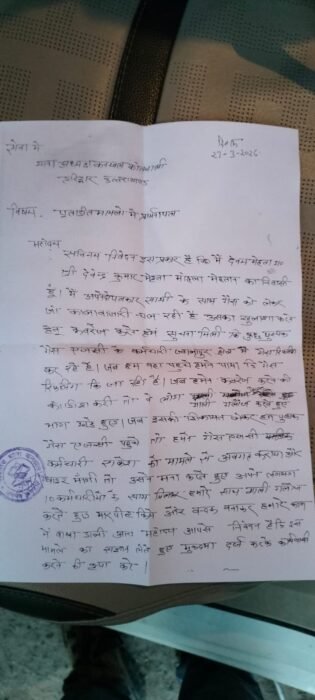 सेवा में
दिनांक
27-3-2026
थाना अध्यक्ष कनखल कोतवाली
हरिद्वार उत्तराखण्ड
विषय-
महोदय
सविनय निवेदन इस प्रकार है कि मैं देवम मेहता पुत्र
श्री देवेन्द्र कुमार मेहता मोहल्ला मेहतान का निवासी
हूँ। मैं अपने साथी के साथ गैस को लेकर
जो कालाबाजारी चल रही है उसका खुलासा करने
हेतु कवरेज करते हमें सूचना मिली कि
गैस एजेन्सी के कर्मचारी ज्वालापुर क्षेत्र में गैस रिफलिंग
कर रहे हैं। जब हम वहां पहुंचे हमने पाया कि गैस
रिफलिंग कि जा रही है। जब हमने कवरेज करने की
कोशिश करी तो वे लोग गाली गलौच करते हुए
भाग खड़े हुए। जब इसकी शिकायत लेकर हम
गैस एजेन्सी पहुंचे तो हमने गैस एजेन्सी
कर्मचारी राकेश को मामले से अवगत कराया और
मांगी तो उसने मना करते हुए अपने लगभग
10 कर्मचारियों के साथ मिलकर हमारे साथ गाली गलौच
करते हुए मारपीट किया बन्धक बनाकर हमारे काम
में बाधा डाली अतः महोदय आपसे निवेदन है कि इस
मामले का संज्ञान लेते हुए मुकदमा दर्ज करके कार्यवाही
करने की कृपा करें।